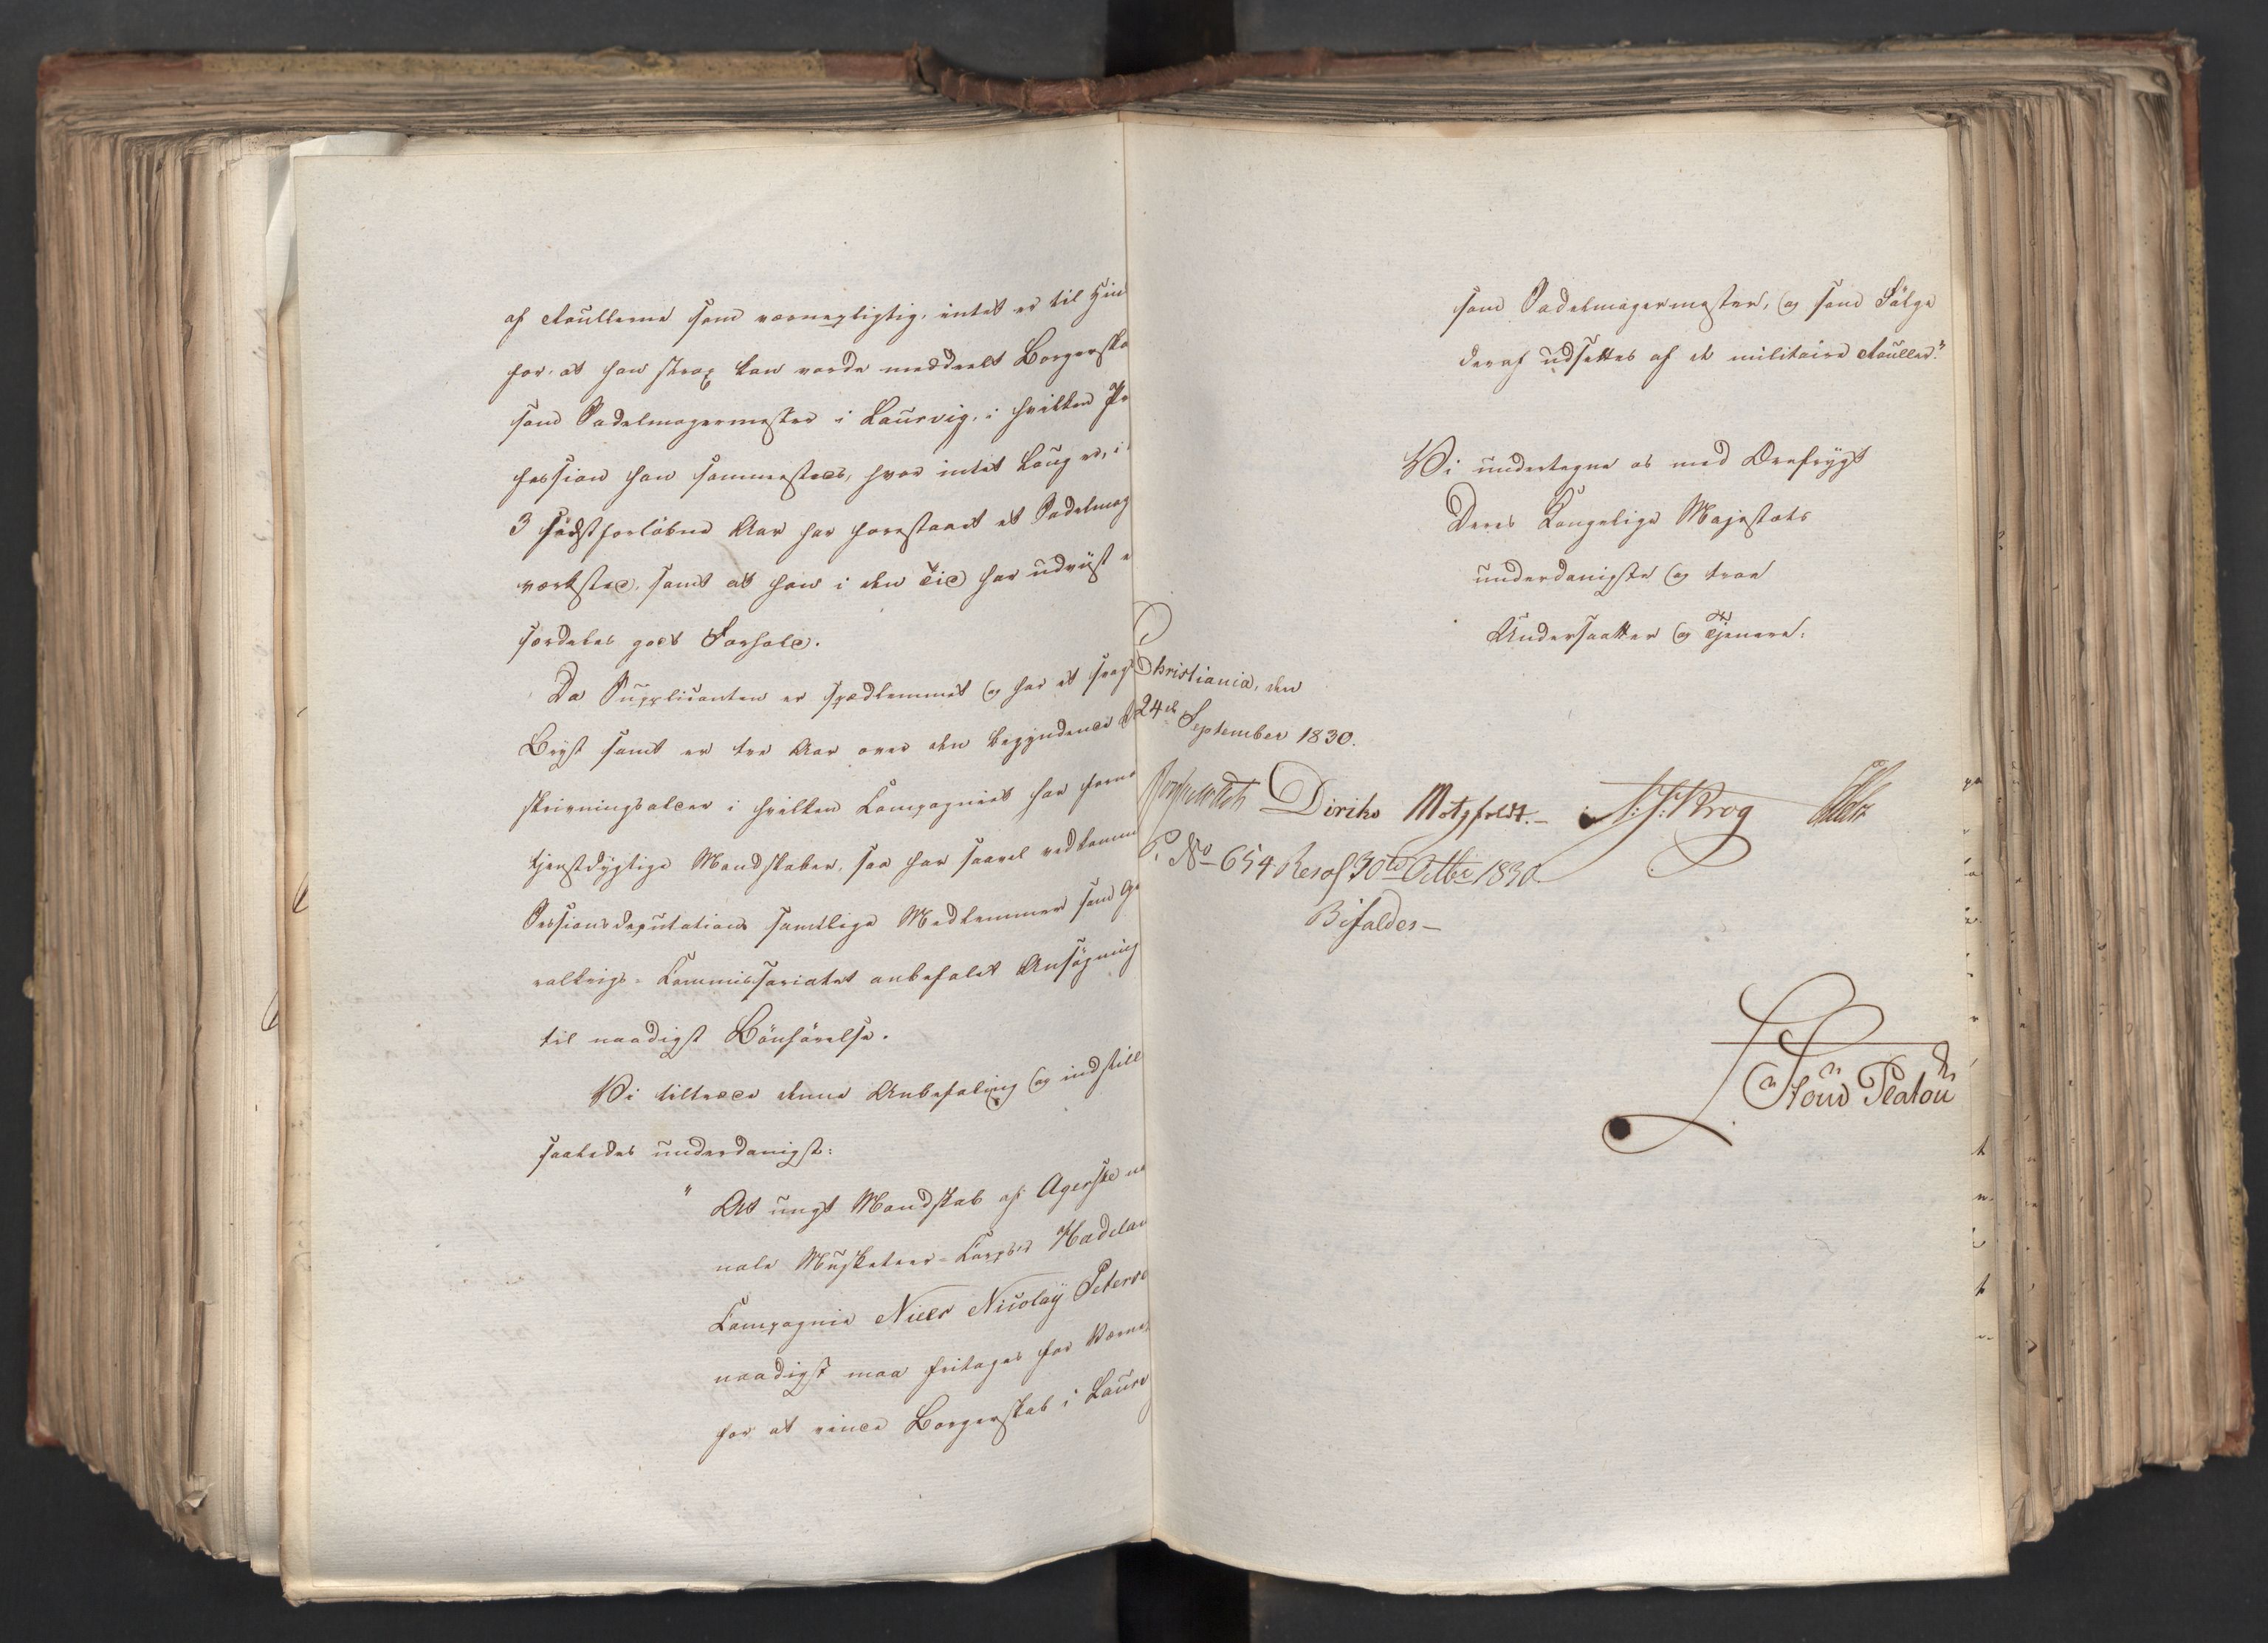 af Roullerne som værnepligtig, intet er til Hin
for, at han strax kan vorde meddeelt Borgerska
som Sadelmagermester i Laurvig, i hvilken Pro
fession han sammesteds, hvor intet Laug er, i
3 sidstforløbne Aar har forestaaet et Sadelmag
værksted, samt at han i den Tid har udviist e
særdeles godt Forhold.
Da Supplicanten er spædlemmet og har et svagt
Bryst samt er tre Aar over den begyndende Ud
skrivningsalder i hvilken Compagniet har forno
tjenstdygtige Mandskaber, saa har saavel vedkomm
Sessionsdeputations samtlige Medlemmer som Ge
ralkrigs-Commissariatet anbefalet Ansøgning
til naadigst Bønhørelse.
Vi tiltræde denne Anbefaling og indstill
saaledes underdanigst:
"At ungt Mandskab af Agerske na
nale Musketeer-Corpses Hadelan
Compagnie Niels Nicolay Peterse
naadigst maa fritages for Værne
for at vinde Borgerskab i Laurv
som Sadelmagermester, og som Følge
deraf udslettes af de militaire Rouller."
Vi undertegne os med Ærefrygt
Deres Kongelige Majestæts
underdanigste og troe
Undersaatter og Tjenere:
Christiania, den
24de September 1830.
Diriks Motzfeldt.- N. J. Krog
P. No 654 Res af 30te Octbr 1830
Bifaldes-
Stoud Platou